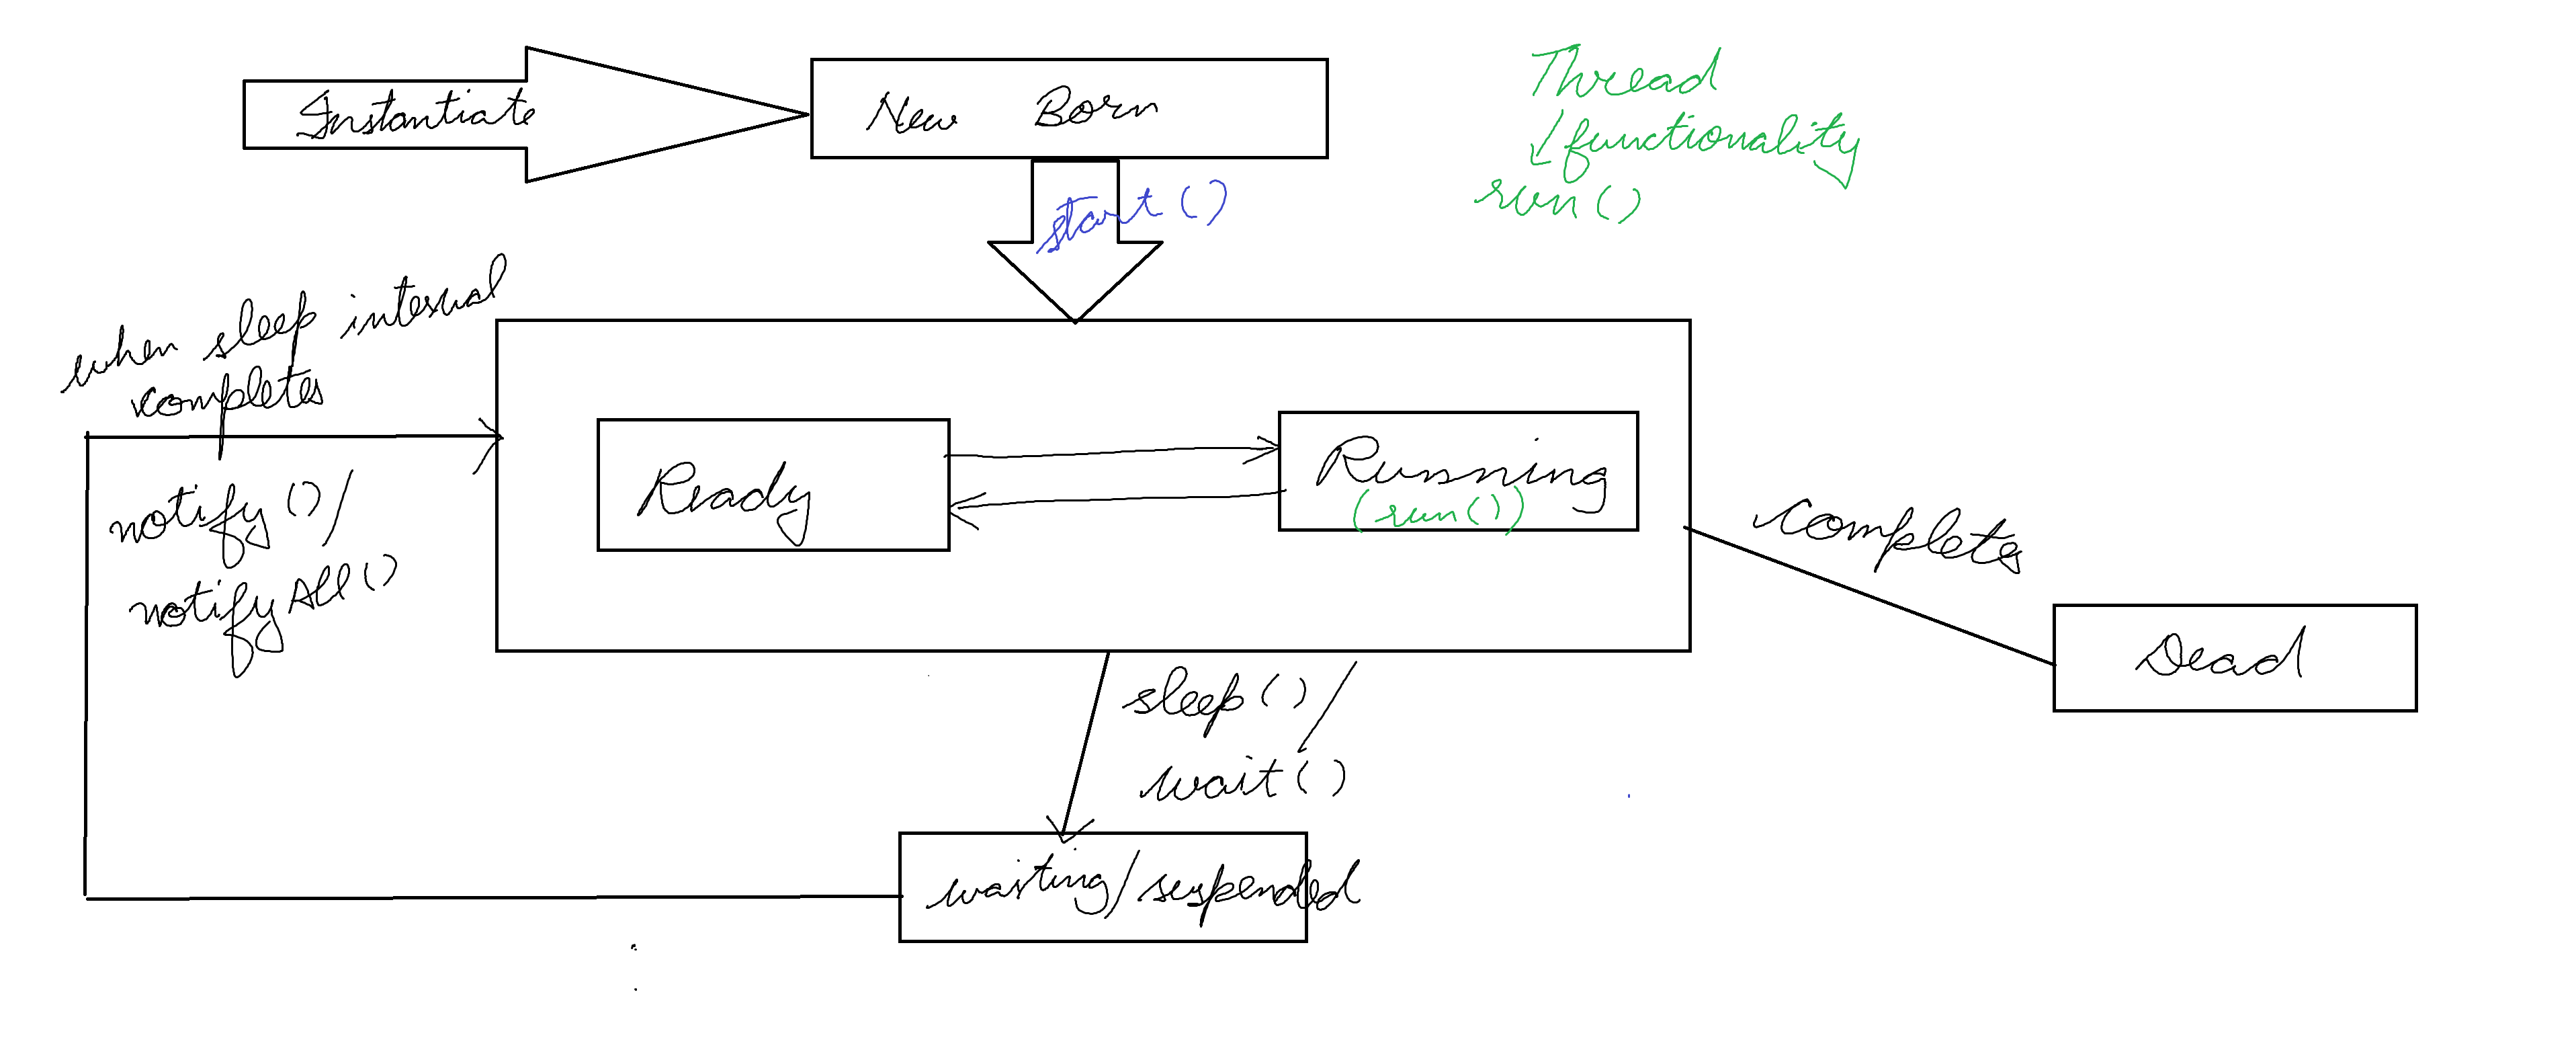 Instantiate
New Born
Thread
functionality
run()
start()
when sleep interval
completes
notify()/
notifyAll()
Ready
Running
(run())
complete
Dead
sleep()/
wait()
waiting/suspended